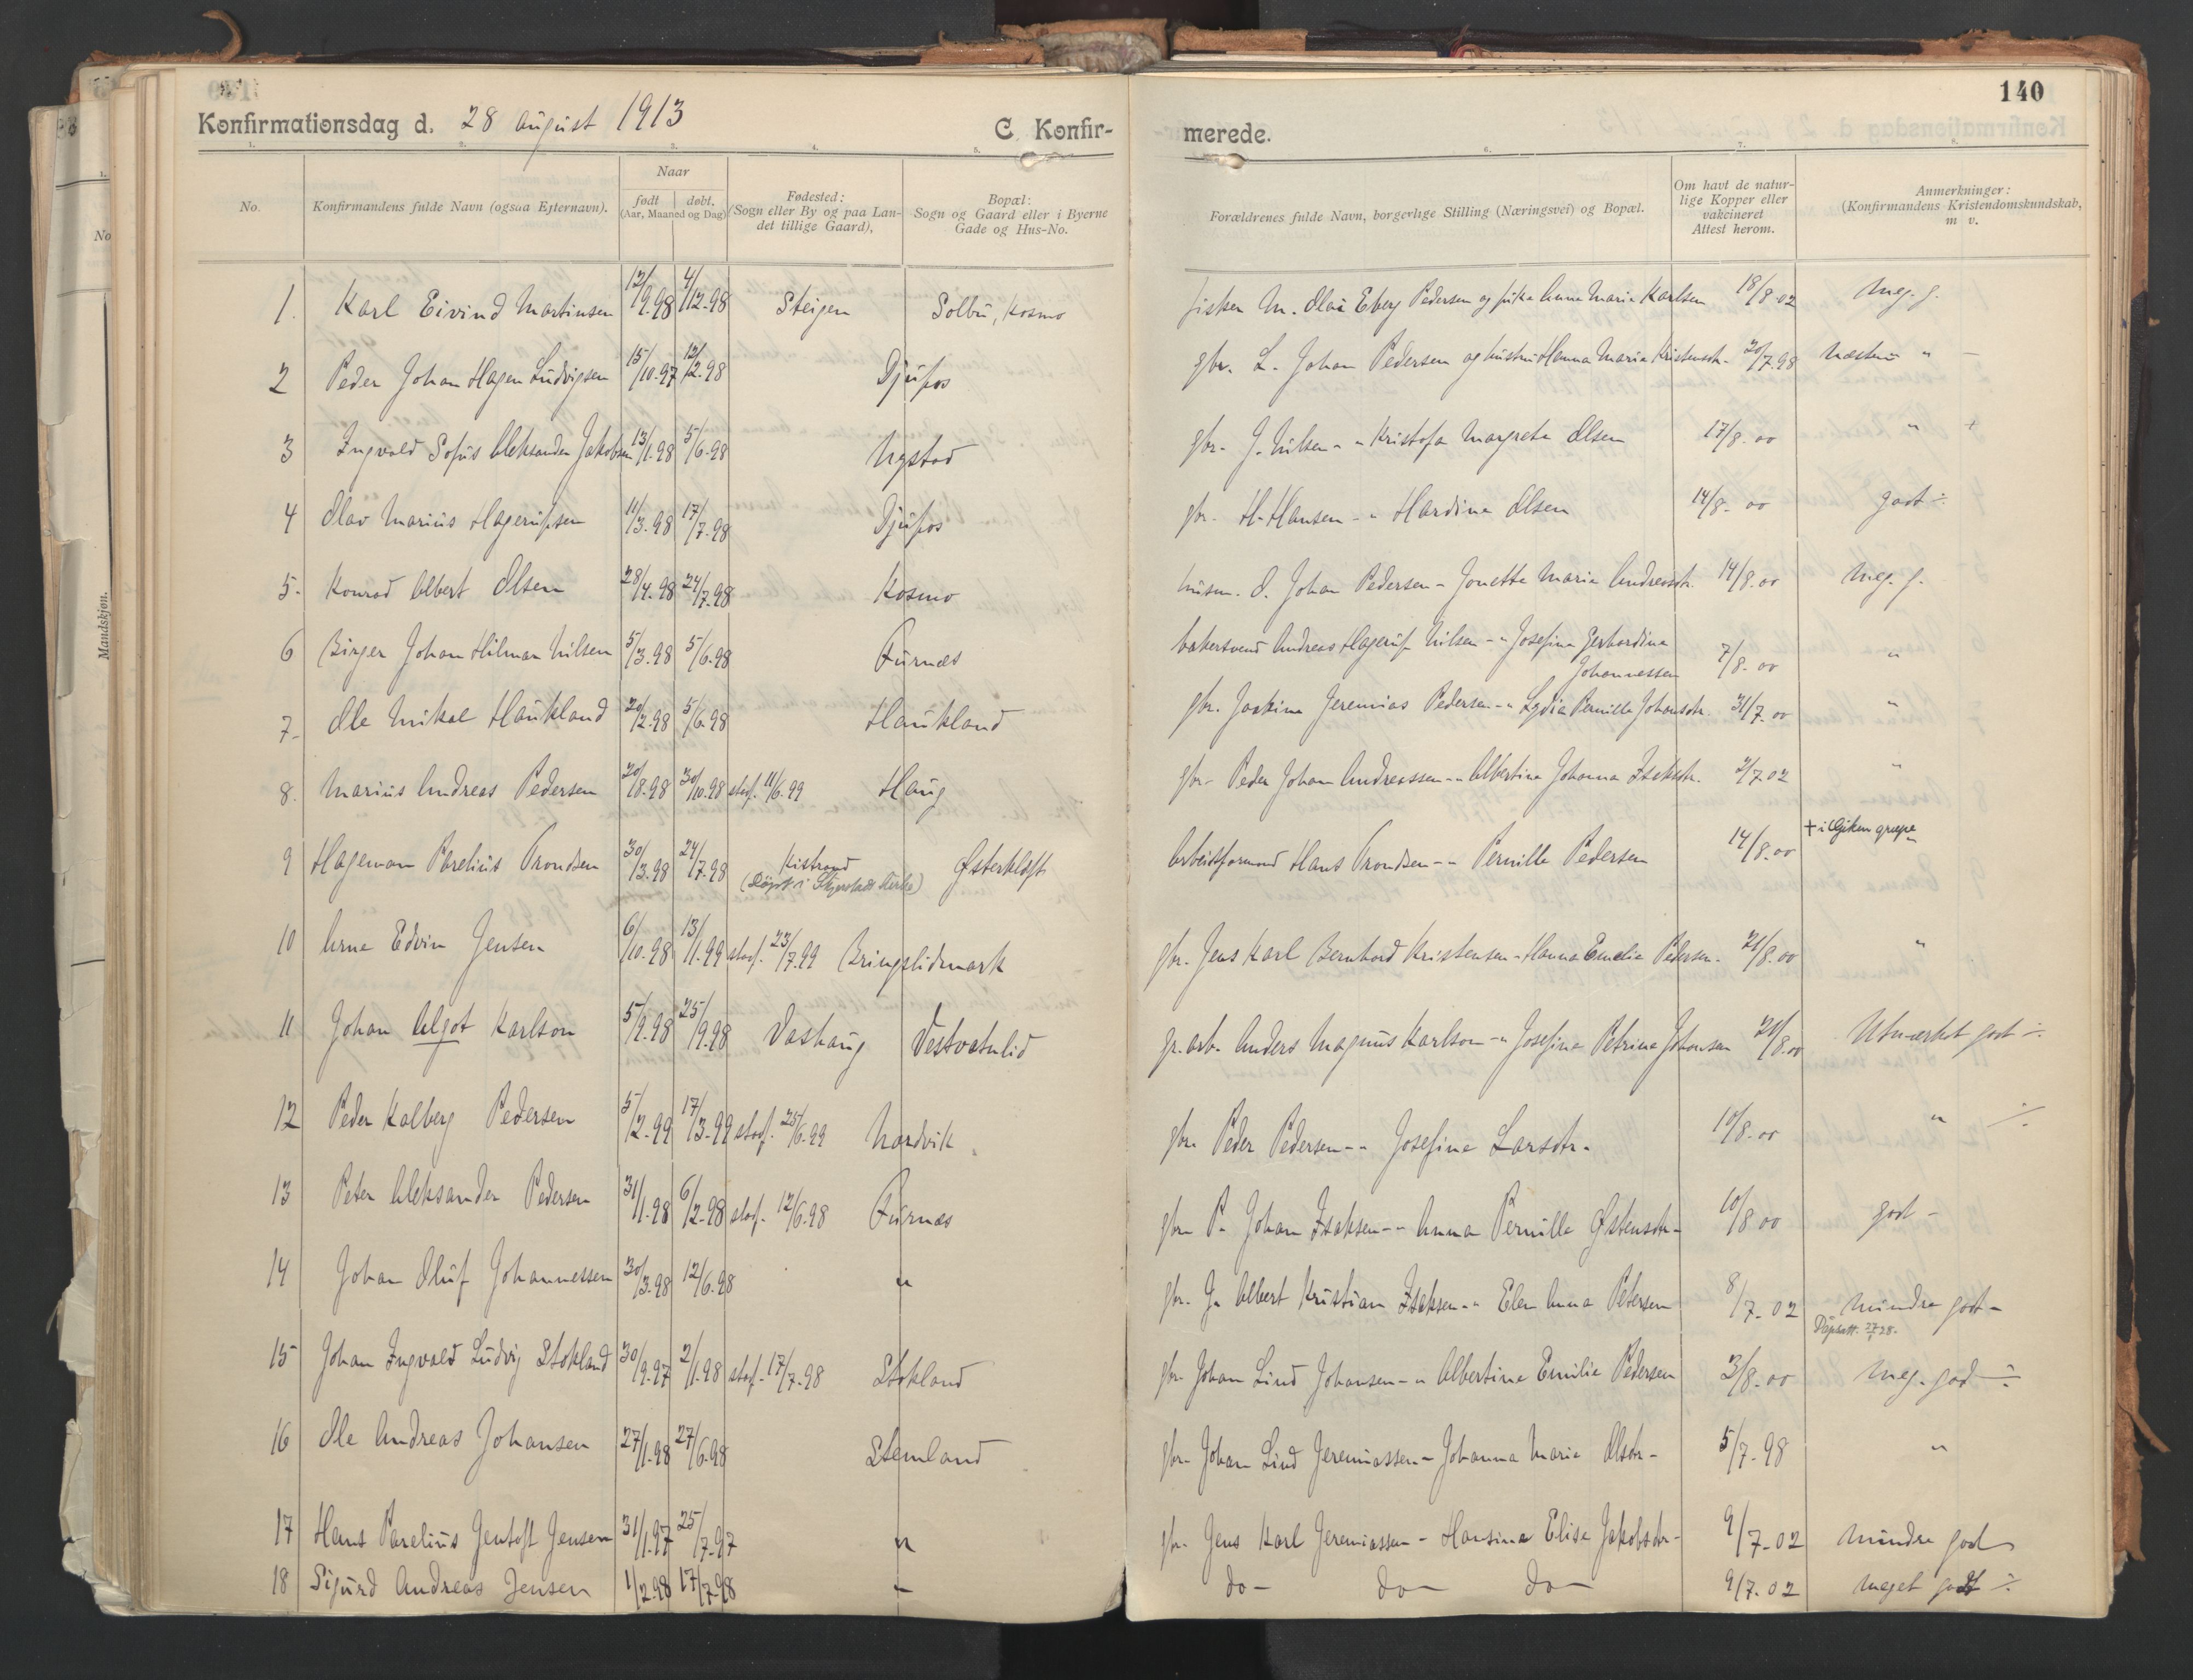 140
Konfirmationsdag d. 28 august 1913 C. Konfir- merede.
1. 2. 3. 4. 5. 6. 7. 8.
No. Konfirmandens fulde Navn (ogsaa Efternavn). Naar født døbt. (Aar, Maaned og Dag) Fødested: (Sogn eller By og paa Lan- det tillige Gaard), Bopæl: Sogn og Gaard eller i Byerne Gade og Hus-No. Forældrenes fulde Navn, borgerlige Stilling (Næringsvei) og Bopæl. Om havt de natur- lige Kopper eller vakcineret Attest herom. Anmerkninger: (Konfirmandens Kristendomskundskab, m v.
1. Karl Eivind Martinsen 12/9.98 4/12-98 Steigen Solbu, Kosmo fisker M. Olai Eberg Pedersen og pike Anna Marie Karlsen 18/8.02 Meg. g.
2 Peder Johan Hagen Ludvigsen 15/10.97 12/2.98 Djupos gbr. L. Johan Pedersen og hustru Hanna Maria Kristensdtr. 20/7.98 Næsten " -
3 Ingvald Sofus Aleksander Jakobsen 13/1.98 5/6.98 Nystad gbr. J. Nilsen - " Kristofa Margrete Olsen 17/8.00 " +
4 Olav Marius Hagerupsen 11/3.98 17/7.98 Djupos gbr. H. Hansen - " Hardine Olsen 14/8.00 godt ÷
5. Konrad Albert Olsen 28/4.98 24/7.98 Kosmo husm. O. Johan Pedersen - Jonette Maria Andreasdtr. 14/8.00 Meg. g.
6 Birger Johan Hilmar Nilsen 5/3.98 5/6.98 Furnes bakersvend Andreas Hagerup Nilsen - " Josefine Gerhardine Johannessen 7/8.00 "
7. Ole Mikal Haukland 20/2.98 5/6.98 Haukland gbr. Joakim Jeremias Pedersen - " Lydia Pernille Johansdtr. 31/7.00 "
8. Marius Andreas Pedersen 20/8.98 30/10.98 stadf. 11/6.99 Haug gbr. Peder Johan Andreassen - " Albertine Johanna Isaksdtr. 2/7.02 "
9 Hageman Parelius Trondsen 30/3.98 24/7.98 Kistrand (Døpt i Skjerstad Kirke) Østerkløft Arbeidsformand Hans Trondsen - " Pernille Pedersen 14/8.00 "
10 Arne Edvin Jensen 6/10.98 13/1.99 stadf. 23/7.99 Bringslidmark gbr. Jens Karl Bernhard Kristensen - Hanna Emelie Pedersen. 21/8.00 "
11 Johan Algot Karlson 5/2.98 25/9.98 Vashaug Vestvatnlid gr.arb. Anders Magnus Karlson - " Josefine Petrine Johansen 21/8.00 Utmerket godt ÷
12 Peder Kalberg Pedersen 5/2.99 17/3.99 stadf. 25/6.99 Nordvik gbr. Peder Pedersen - " Josefine Larsdtr. 10/8.00 " ÷
13 Peter Aleksander Pedersen 31/1.98 6/2.98 stadf. 12/6.98 Furnes gbr. P. Johan Isaksen - " Anna Pernille Østensdtr. 10/8 00 godt -
14 Johan Oluf Johannessen 30/3.98 12/6.98 " gbr. J. Albert Kristian Isaksen - " Elen Anna Petersen 8/7.02 Mindre godt -
15 Johan Ingvald Ludvig Stokland 30/9.97 2/1.98 stadf. 17/7.98 Stokland gbr. Johan Lind Johansen - " Albertine Emilie Pedersen 3/8.00 Døpsatt. 27/7 28. Meg. god ÷
16 Ole Andreas Johansen 27/1.98 27/6.98 Stemland gbr. Johan Lind Jeremiassen - Johanna Marie Olsdtr. 5/7.98 "
17 Hans Parelius Gentoft Jensen 31/1.97 25/7.97 " gbr. Jens Karl Jeremiassen - Hansine Elise Jakobsdtr. 9/7.02 Mindre god
18 Sigurd Andreas Jensen 1/2.98 17/7.98 " do - do - do - 9/7.02 Meget godt ÷
No
Mandskjøn.